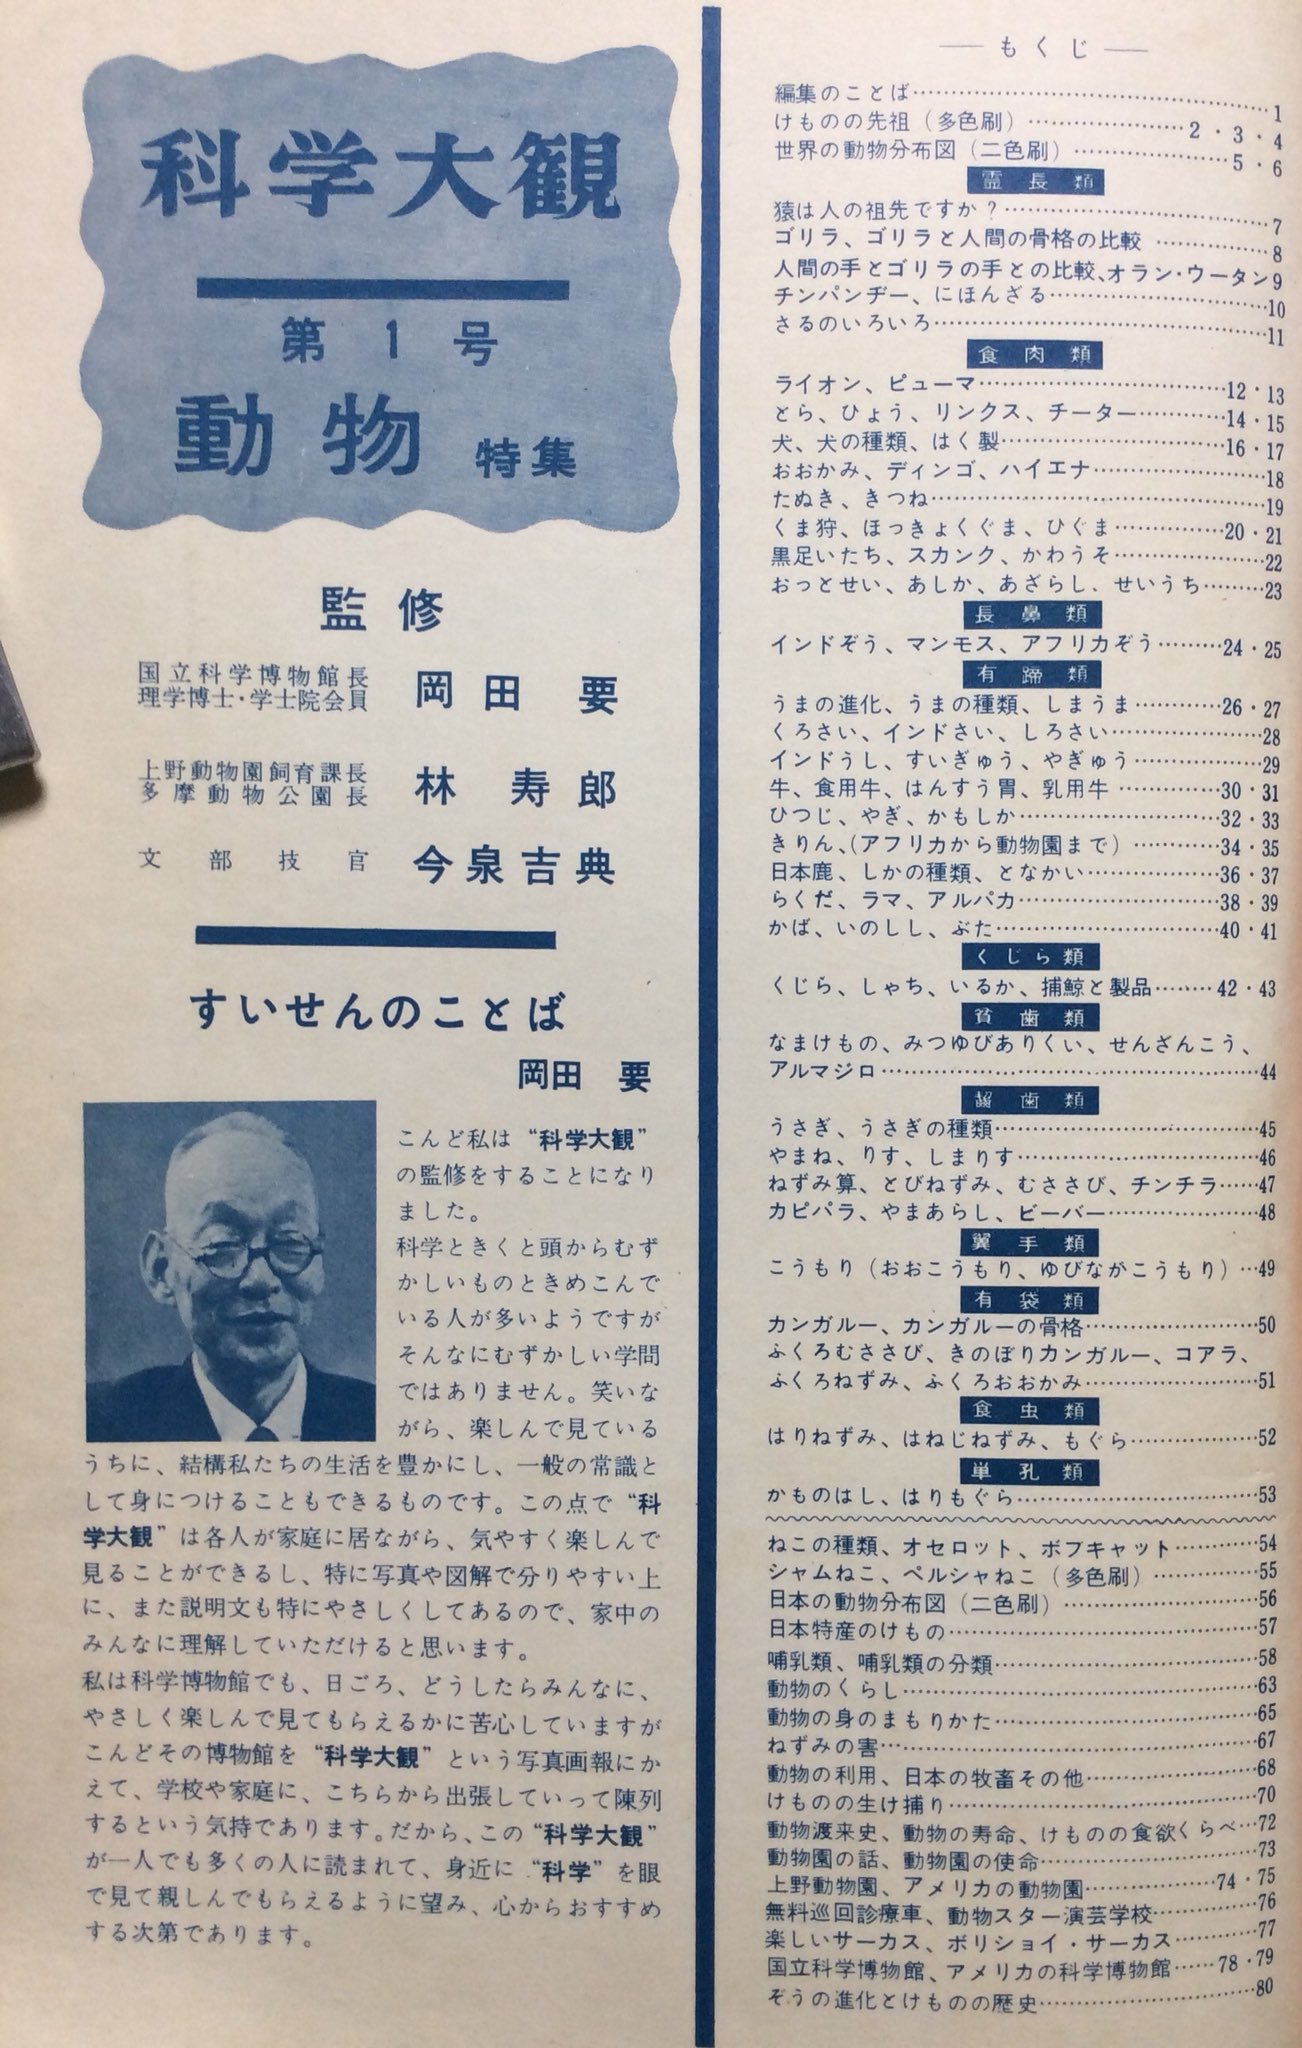 科学大観
第1号
動物 特集
監修
国立科学博物館長
理学博士・学士院会員
岡田 要
上野動物園飼育課長
多摩動物公園長
林 寿郎
文部技官
今泉吉典
すいせんのことば
岡田 要
こんど私は“科学大観”
の監修をすることになり
ました。
科学ときくと頭からむず
かしいものときめこんで
いる人が多いようですが
そんなにむずかしい学問
ではありません。笑いな
がら、楽しんで見ている
うちに、結構私たちの生活を豊かにし、一般の常識と
して身につけることもできるものです。この点で“科
学大観”は各人が家庭に居ながら、気やすく楽しんで
見ることができるし、特に写真や図解で分りやすい上
に、また説明文も特にやさしくしてあるので、家中の
みんなに理解していただけると思います。
私は科学博物館でも、日ごろ、どうしたらみんなに、
やさしく楽しんで見てもらえるかに苦心していますが
こんどその博物館を“科学大観”という写真画報にか
えて、学校や家庭に、こちらから出張していって陳列
するという気持であります。だから、この“科学大観”
が一人でも多くの人に読まれて、身近に“科学”を眼
で見て親しんでもらえるように望み、心からおすすめ
する次第であります。
もくじ
編集のことば……1
けものの先祖（多色刷）……2・3・4
世界の動物分布図（二色刷）……5・6
霊長類
猿は人の祖先ですか？……7
ゴリラ、ゴリラと人間の骨格の比較……8
人間の手とゴリラの手との比較、オラン・ウータン9
チンパンヂー、にほんざる……10
さるのいろいろ……11
食肉類
ライオン、ピューマ……12・13
とら、ひょう、リンクス、チーター……14・15
犬、犬の種類、はく製……16・17
おおかみ、ディンゴ、ハイエナ……18
たぬき、きつね……19
くま狩、ほっきょくぐま、ひぐま……20・21
黒足いたち、スカンク、かわうそ……22
おっとせい、あしか、あざらし、せいうち……23
長鼻類
インドぞう、マンモス、アフリカぞう……24・25
有蹄類
うまの進化、うまの種類、しまうま……26・27
くろさい、インドさい、しろさい……28
インドうし、すいぎゅう、やぎゅう……29
牛、食用牛、はんすう胃、乳用牛……30・31
ひつじ、やぎ、かもしか……32・33
きりん、（アフリカから動物園まで）……34・35
日本鹿、しかの種類、となかい……36・37
らくだ、ラマ、アルパカ……38・39
かば、いのしし、ぶた……40・41
くじら類
くじら、しゃち、いるか、捕鯨と製品……42・43
貧歯類
なまけもの、みつゆびありくい、せんざんこう、
アルマジロ……44
齧歯類
うさぎ、うさぎの種類……45
やまね、りす、しまりす……46
ねずみ算、とびねずみ、むささび、チンチラ……47
カピバラ、やまあらし、ビーバー……48
翼手類
こうもり（おおこうもり、ゆびながこうもり）…49
有袋類
カンガルー、カンガルーの骨格……50
ふくろむささび、きのぼりカンガルー、コアラ、
ふくろねずみ、ふくろおおかみ……51
食虫類
はりねずみ、はねじねずみ、もぐら……52
単孔類
かものはし、はりもぐら……53
ねこの種類、オセロット、ボブキャット……54
シャムねこ、ペルシャねこ（多色刷）……55
日本の動物分布図（二色刷）……56
日本特産のけもの……57
哺乳類、哺乳類の分類……58
動物のくらし……63
動物の身のまもりかた……65
ねずみの害……67
動物の利用、日本の牧畜その他……68
けものの生け捕り……70
動物渡来史、動物の寿命、けものの食欲くらべ…72
動物園の話、動物園の使命……73
上野動物園、アメリカの動物園……74・75
無料巡回診療車、動物スター演芸学校……76
楽しいサーカス、ボリショイ・サーカス……77
国立科学博物館、アメリカの科学博物館……78・79
ぞうの進化とけものの歴史……80